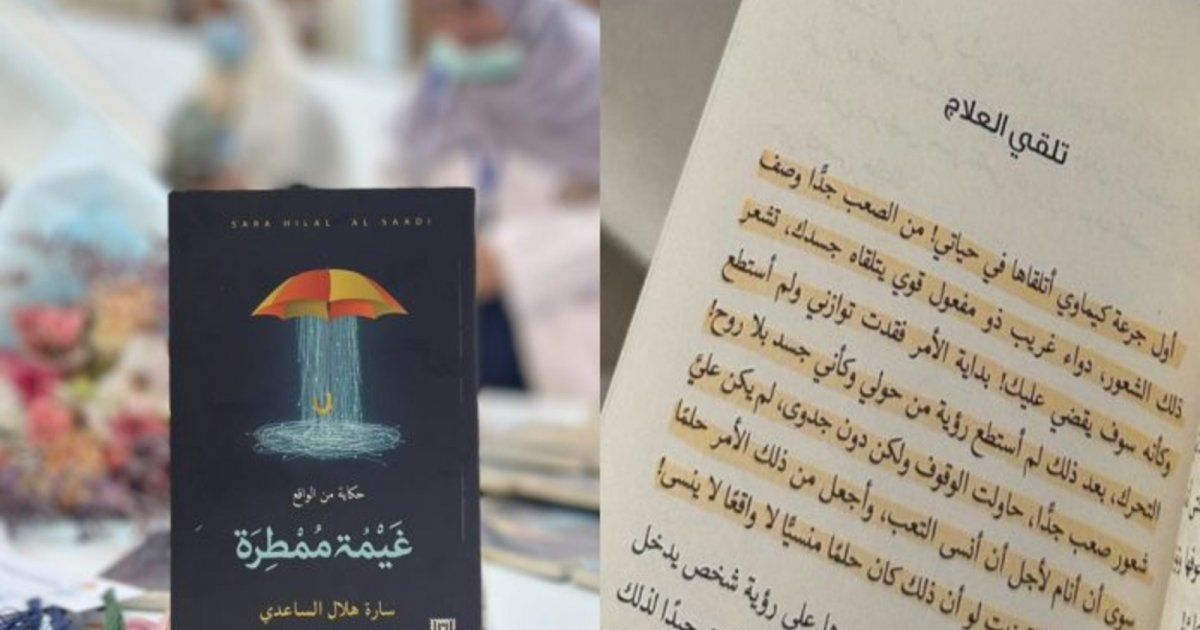 SARA HILAL AL SAADI
حكاية من الواقع
غَيْمَة مُمْطِرَة
سارة هلال الساعدي
تلقي العلاج
أول جرعة كيماوي أتلقاها في حياتي! من الصعب جدًّا وصف
ذلك الشعور، دواء غريب ذو مفعول قوي يتلقاه جسدك، تشعر
وكأنه سوف يقضي عليك! بداية الأمر فقدت توازني ولم أستطع
التحرك، بعد ذلك لم أستطع رؤية من حولي وكأني جسد بلا روح!
شعور صعب جدًّا، حاولت الوقوف ولكن دون جدوى، لم يكن عليَّ
سوى أن أنام لأجل أن أنسى التعب، وأجعل من ذلك الأمر حلمًا
لو أن ذلك كان حلمًا منسيًّا لا واقعًا لا ينسى!
على رؤية شخص يدخل
جيدًا لذلك